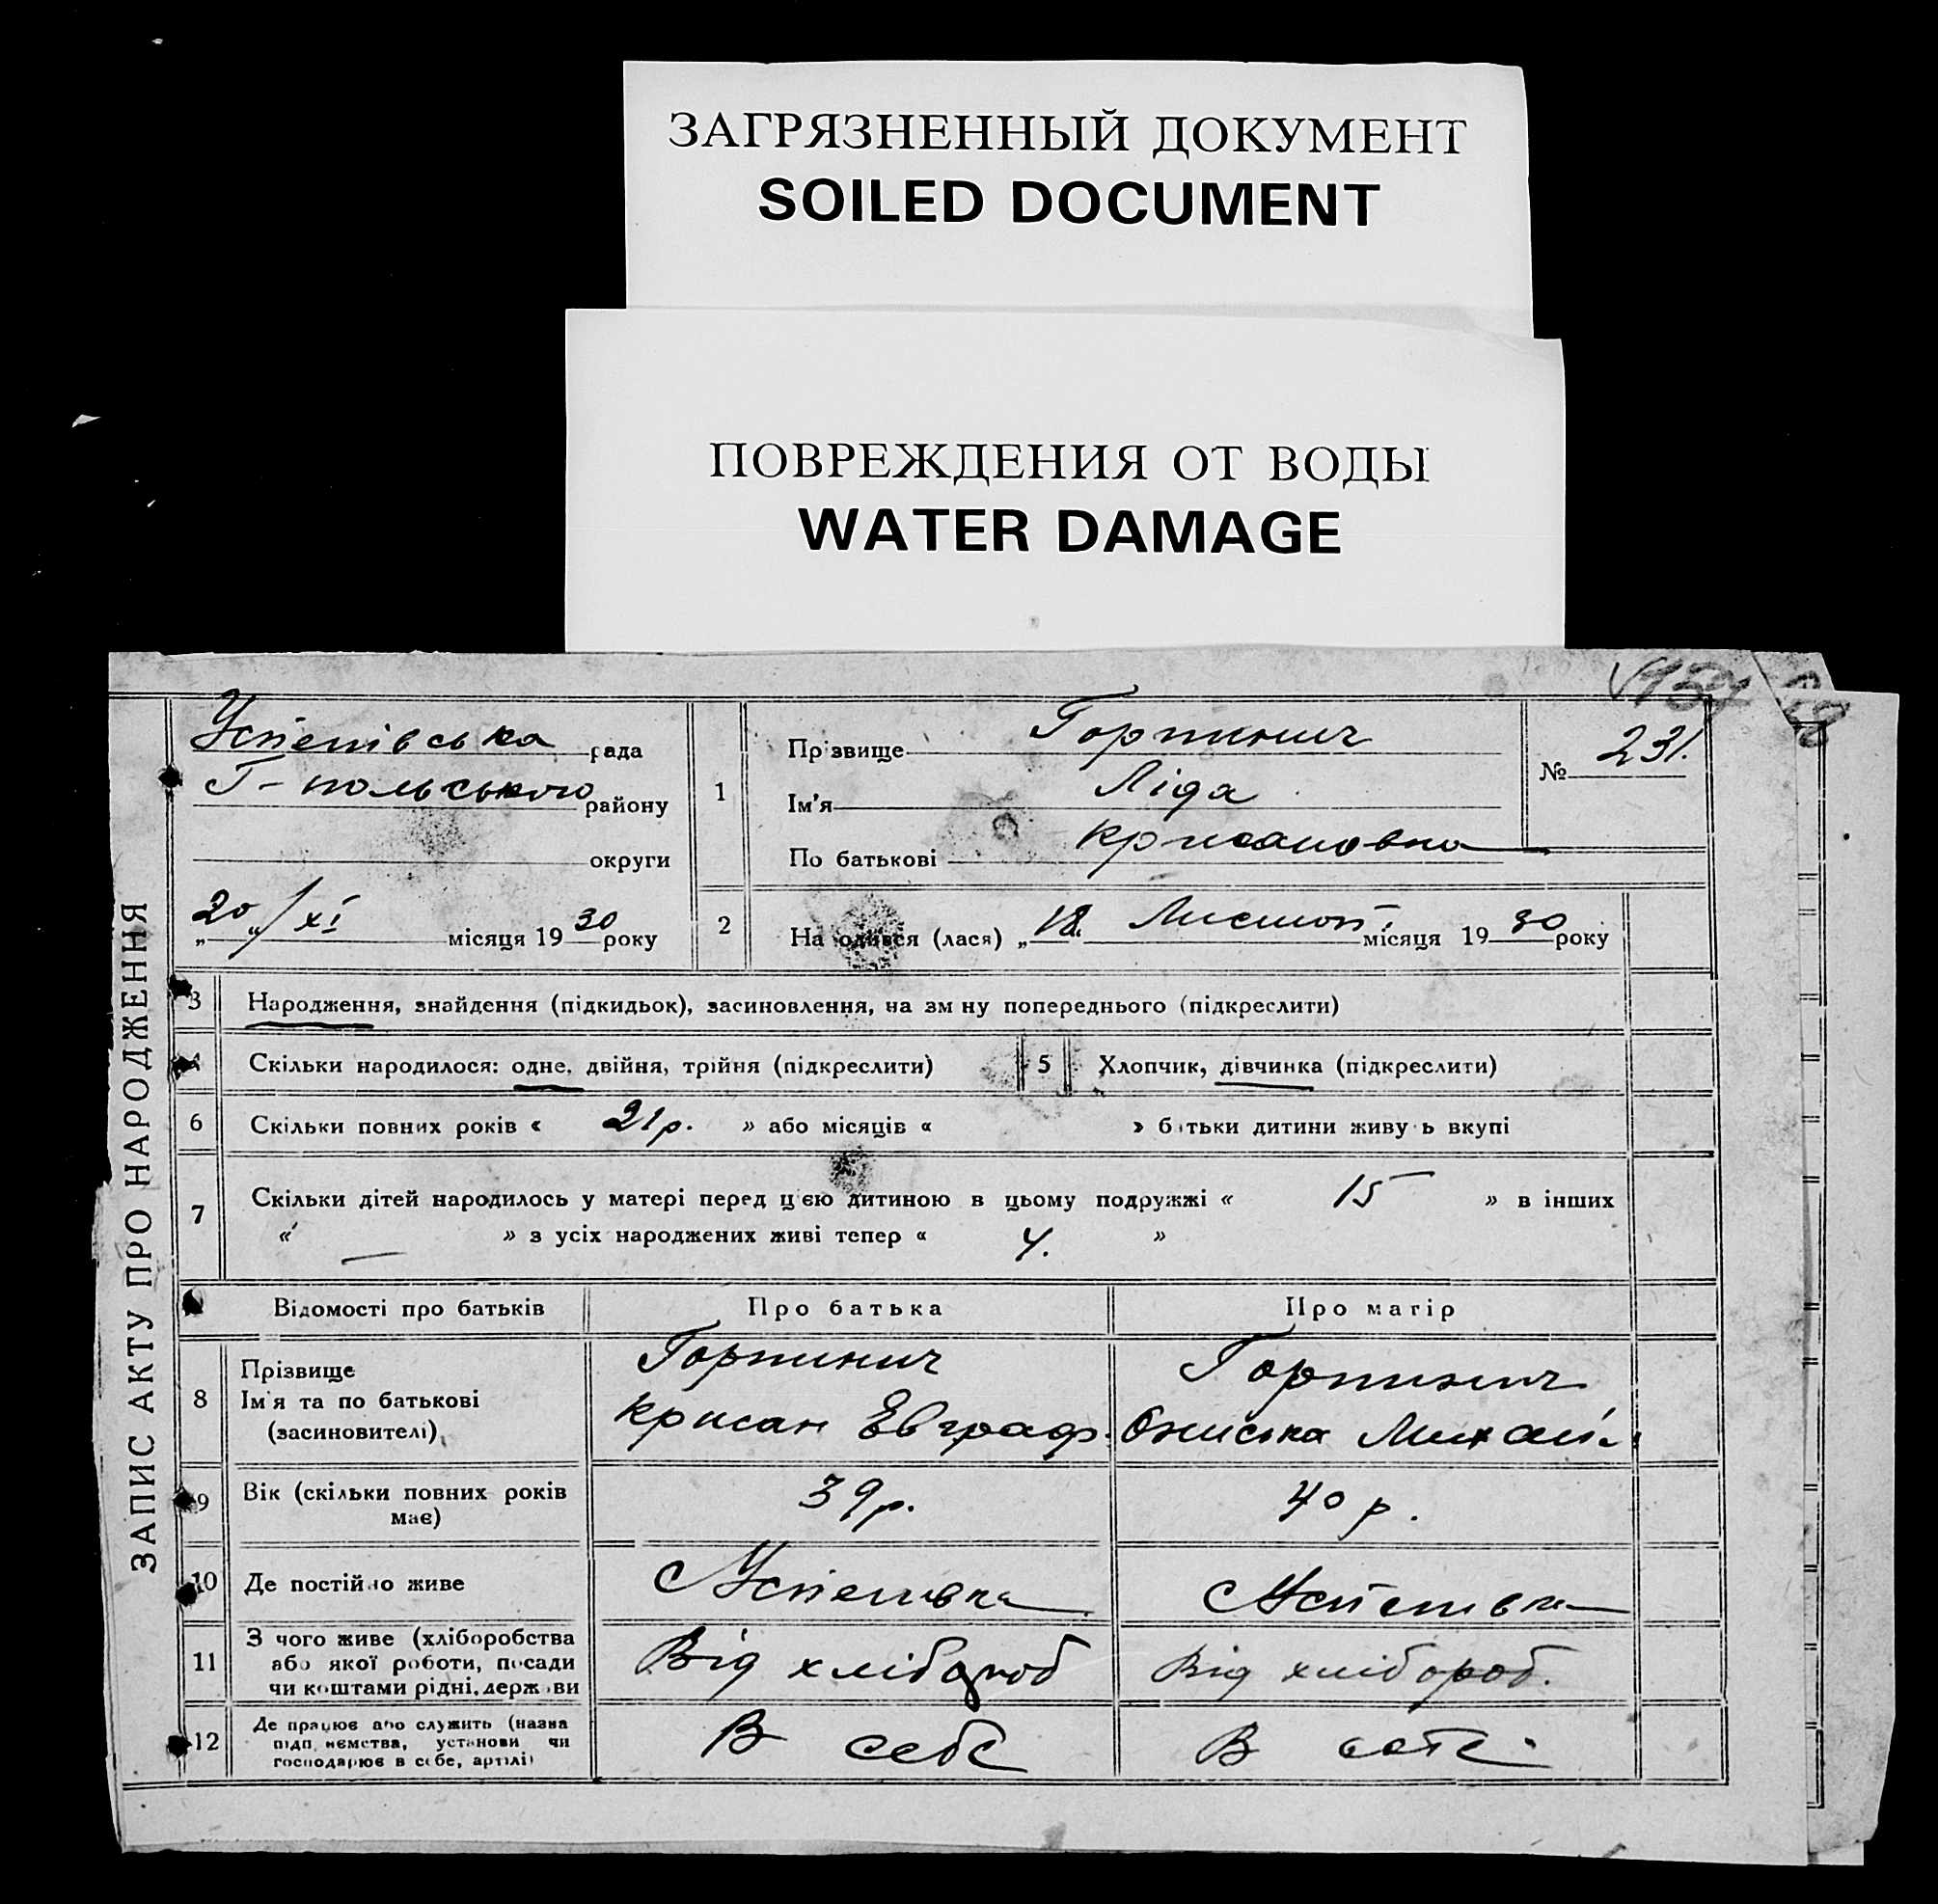 ЗАГРЯЗНЕННЫЙ ДОКУМЕНТ
SOILED DOCUMENT
ПОВРЕЖДЕНИЯ ОТ ВОДЫ
WATER DAMAGE
ЗАПИС АКТУ ПРО НАРОДЖЕННЯ
Успенівська рада
Г-польського району
округи
„20"/XI місяця 1930 року
1
Прізвище Горпинич
Ім'я Ліда
По батькові Крисановна
№ 231.
2
Народився (лася) „18 Листоп. місяця 1930 року
3 Народження, знайдення (підкидьок), засиновлення, на зміну попереднього (підкреслити)
4 Скільки народилося: одне, двійня, трійня (підкреслити) 5 Хлопчик, дівчинка (підкреслити)
6 Скільки повних років « 21 р. » або місяців « » батьки дитини живуть вкупі
7 Скільки дітей народилось у матері перед цією дитиною в цьому подружжі « 15 » в інших
« — » з усіх народжених живі тепер « 4. »
Відомості про батьків Про батька Про матір
8 Прізвище
Ім'я та по батькові
(засиновителі)
Горпинич
Крисан Евграф.
Горпинич
Ониська Михай
9 Вік (скільки повних років
має)
39 р. 40 р.
10 Де постійно живе С Успенивка С Успенивка
11 З чого живе (хліборобства
або якої роботи, посади
чи коштами рідні, держави
Від хлібороб Від хлібороб.
12 Де працює або служить (назва
підприємства, установи чи
господарює в себе, артілі)
В себе В себе